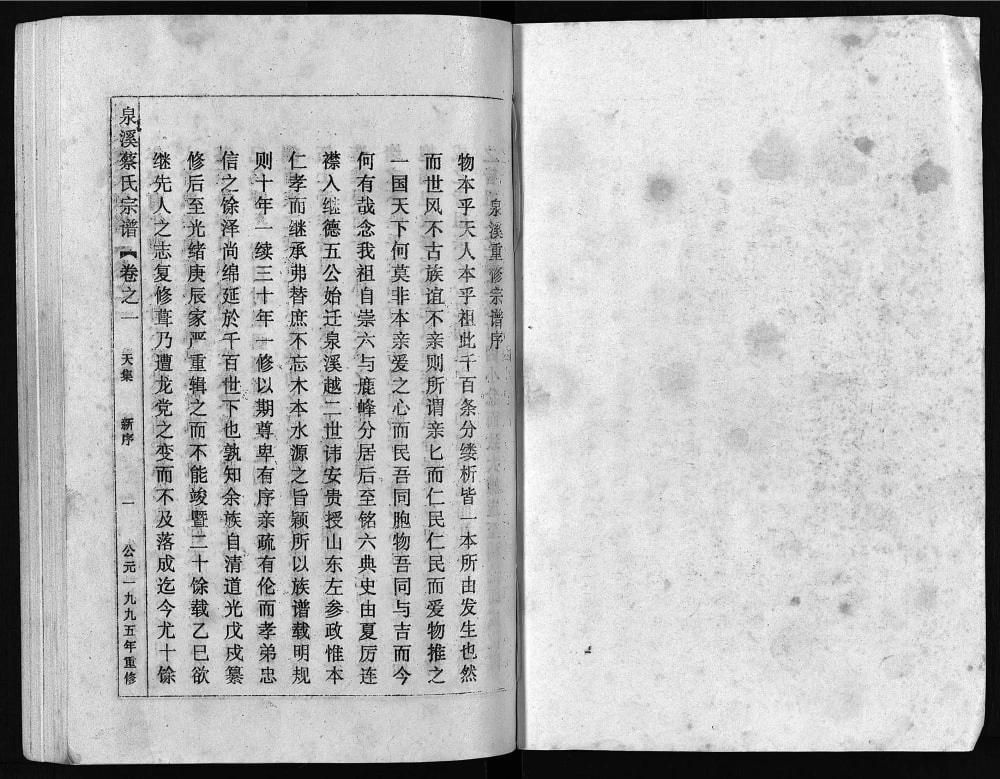 泉溪重修宗谱序
物本乎天人本乎祖此千百条分缕析皆一本所由发生也然
而世风不古族谊不亲则所谓亲匕而仁民仁民而爱物推之
一国天下何莫非本亲爱之心而民吾同胞物吾同与吉而今
何有哉念我祖自崇六与鹿峰分居后至铭六典史由夏厉连
襟入继德五公始迁泉溪越二世讳安贵授山东左参政惟本
仁孝而继承弗替庶不忘木本水源之旨颖所以族谱载明规
则十年一续三十年一修以期尊卑有序亲疏有伦而孝弟忠
信之馀泽尚绵延於千百世下也孰知余族自清道光戊戌纂
修后至光绪庚辰家严重辑之而不能竣暨二十馀载乙巳欲
继先人之志复修葺乃遭龙党之变而不及落成迄今尤十馀
泉溪蔡氏宗谱 【卷之一 天集 新序 一 公元一九九五年重修